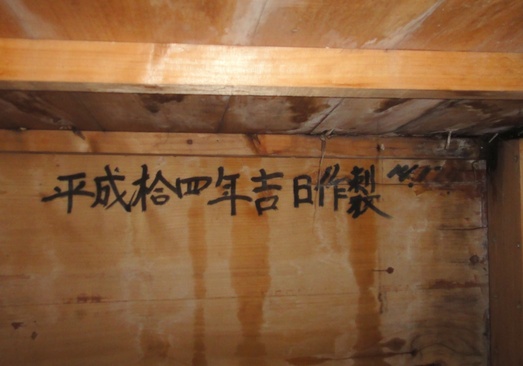 平成拾四年吉日作製